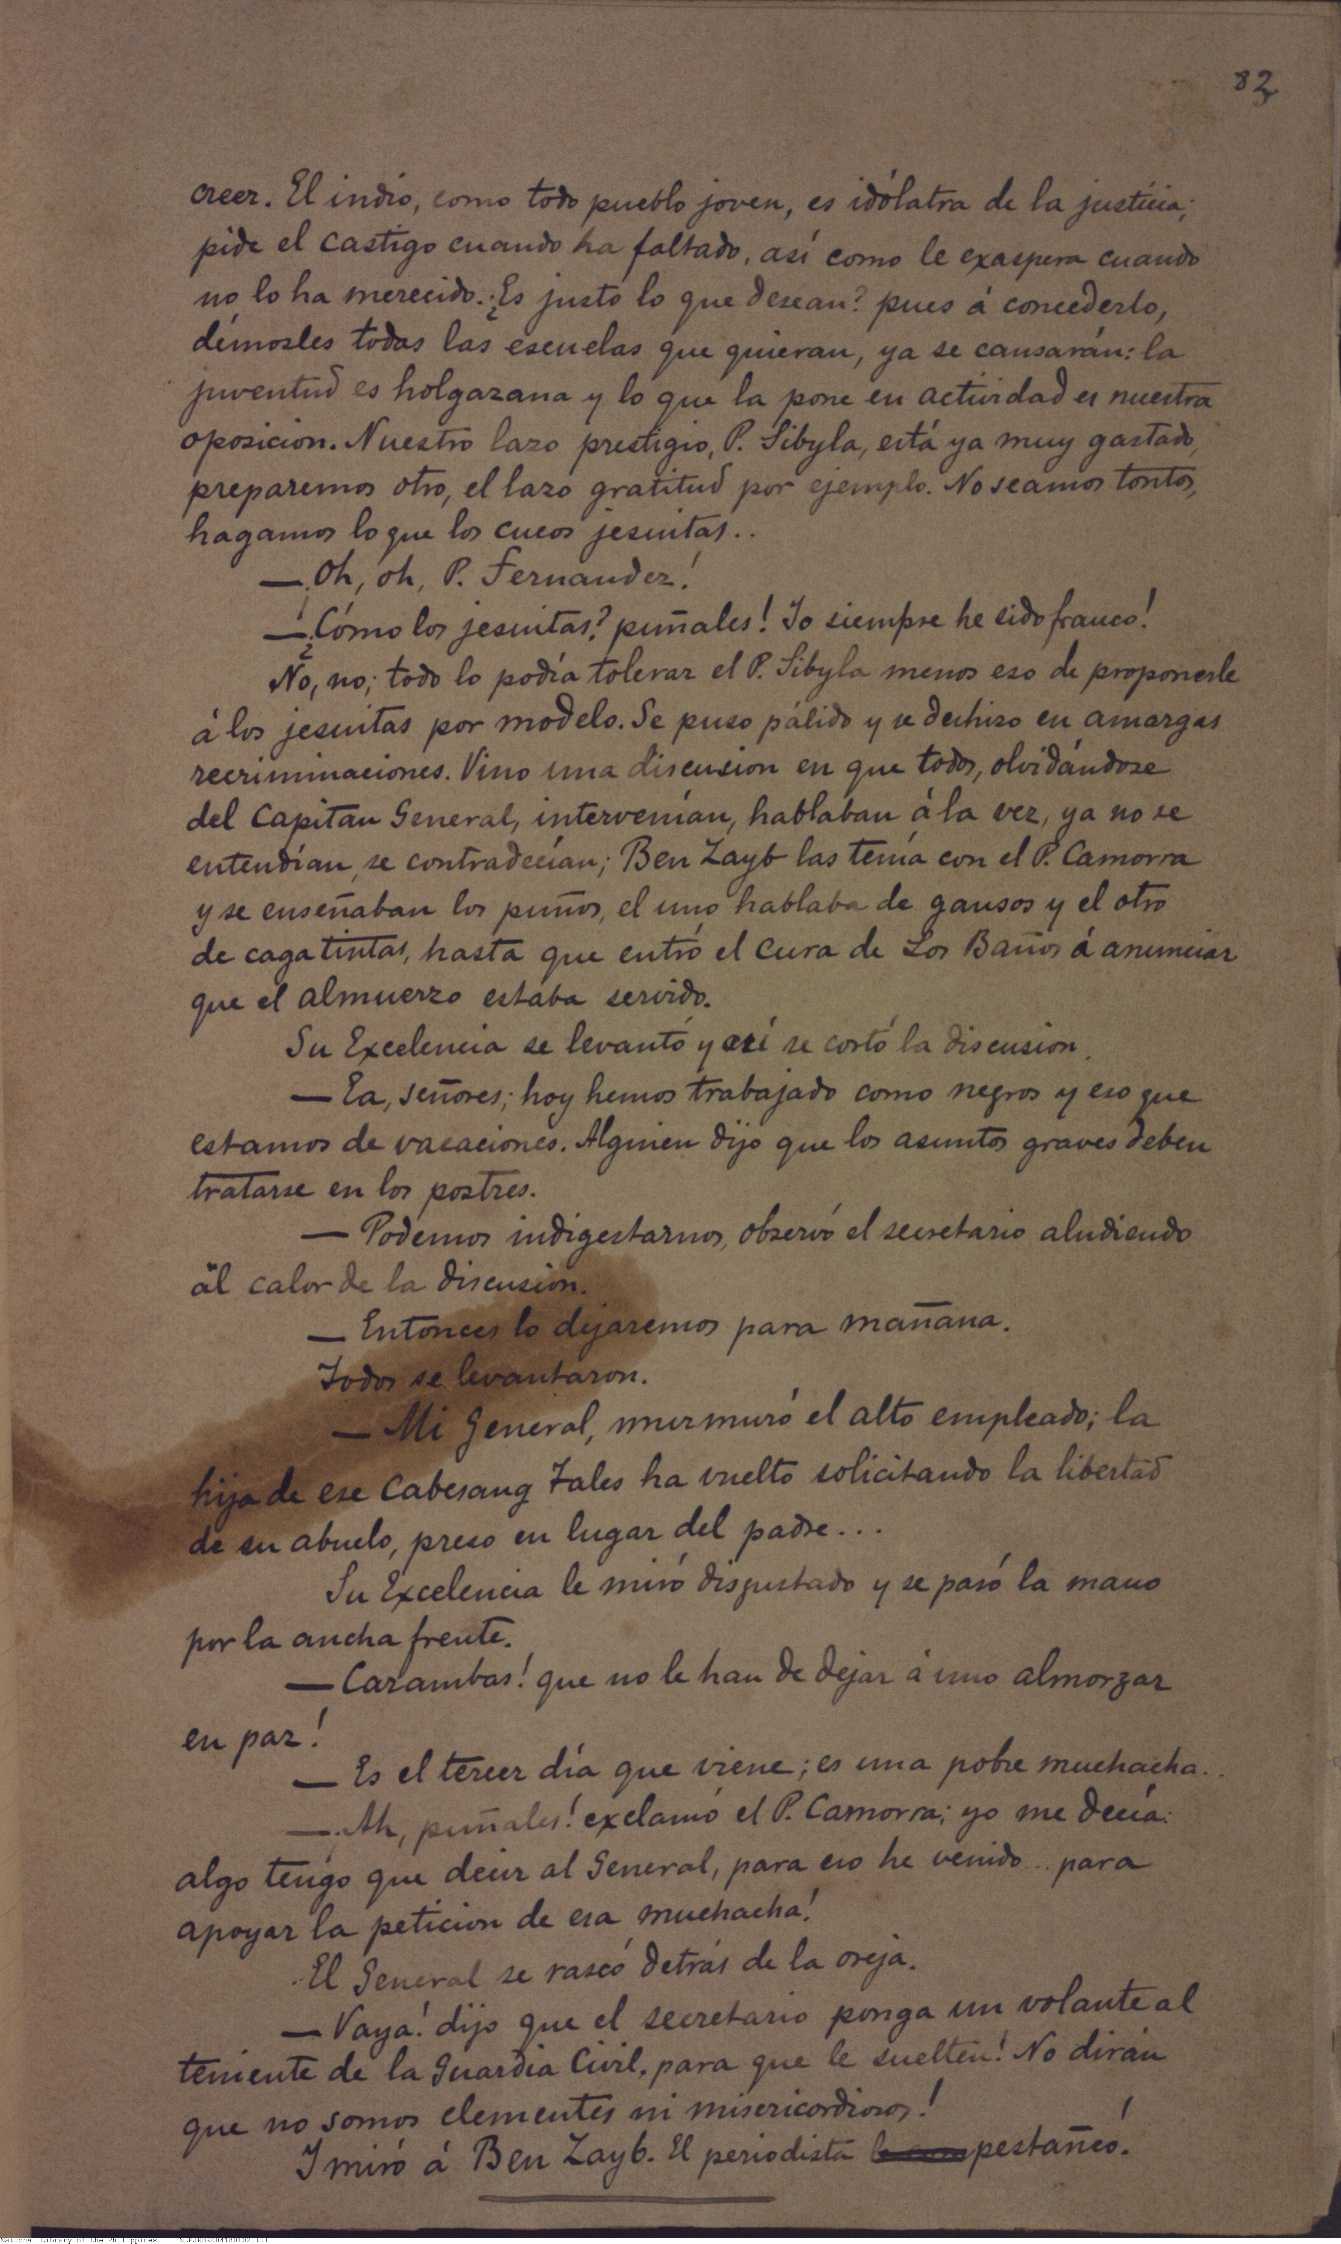 82
creer. El indio, como todo pueblo joven, es idólatra de la justicia;
pide el castigo cuando ha faltado, así como le exaspera cuando
no lo ha merecido. ¿Es justo lo que desean? pues á concederlo,
démosles todas las escuelas que quieran, ya se cansarán: la
juventud es holgazana y lo que la pone en actividad es nuestra
oposicion. Nuestro lazo prestigio, P. Sibyla, está ya muy gastado,
preparemos otro, el lazo gratitud por ejemplo. No seamos tontos,
hagamos lo que los cucos jesuitas..
— Oh, oh, P. Fernandez!
— ¿Cómo los jesuitas? puñales! Yo siempre he sido franco!
No, no; todo lo podía tolerar el P. Sibyla menos eso de proponerle
á los jesuitas por modelo. Se puso pálido y se deshizo en amargas
recriminaciones. Vino una discusion en que todos, olvidándose
del Capitan General, intervenían, hablaban á la vez, ya no se
entendían, se contradecían; Ben Zayb las tenía con el P. Camorra
y se enseñaban los puños, el uno hablaba de gansos y el otro
de cagatintas, hasta que entró el cura de Los Baños á anunciar
que el almuerzo estaba servido.
Su Excelencia se levantó y así se cortó la discusion.
— Ea, señores; hoy hemos trabajado como negros y eso que
estamos de vacaciones. Alguien dijo que los asuntos graves deben
tratarse en los postres.
— Podemos indigestarnos, observó el secretario aludiendo
al calor de la discusion.
— Entonces lo dejaremos para mañana.
Todos se levantaron.
— Mi General, murmuró el alto empleado; la
hija de ese Cabesang Tales ha vuelto solicitando la libertad
de su abuelo, preso en lugar del padre...
Su Excelencia le miró disgustado y se pasó la mano
por la ancha frente.
— Carambas! que no le han de dejar á uno almorzar
en paz!
— Es el tercer día que viene; es una pobre muchacha..
— Ah, puñales! exclamó el P. Camorra; yo me decía:
algo tengo que decir al General, para eso he venido.. para
apoyar la peticion de esa muchacha!
El General se rascó detrás de la oreja.
— Vaya! dijo que el secretario ponga un volante al
teniente de la Guardia Civil, para que le suelten! No dirán
que no somos clementes ni misericordiosos!
Y miró á Ben Zayb. El periodista pestañeó!